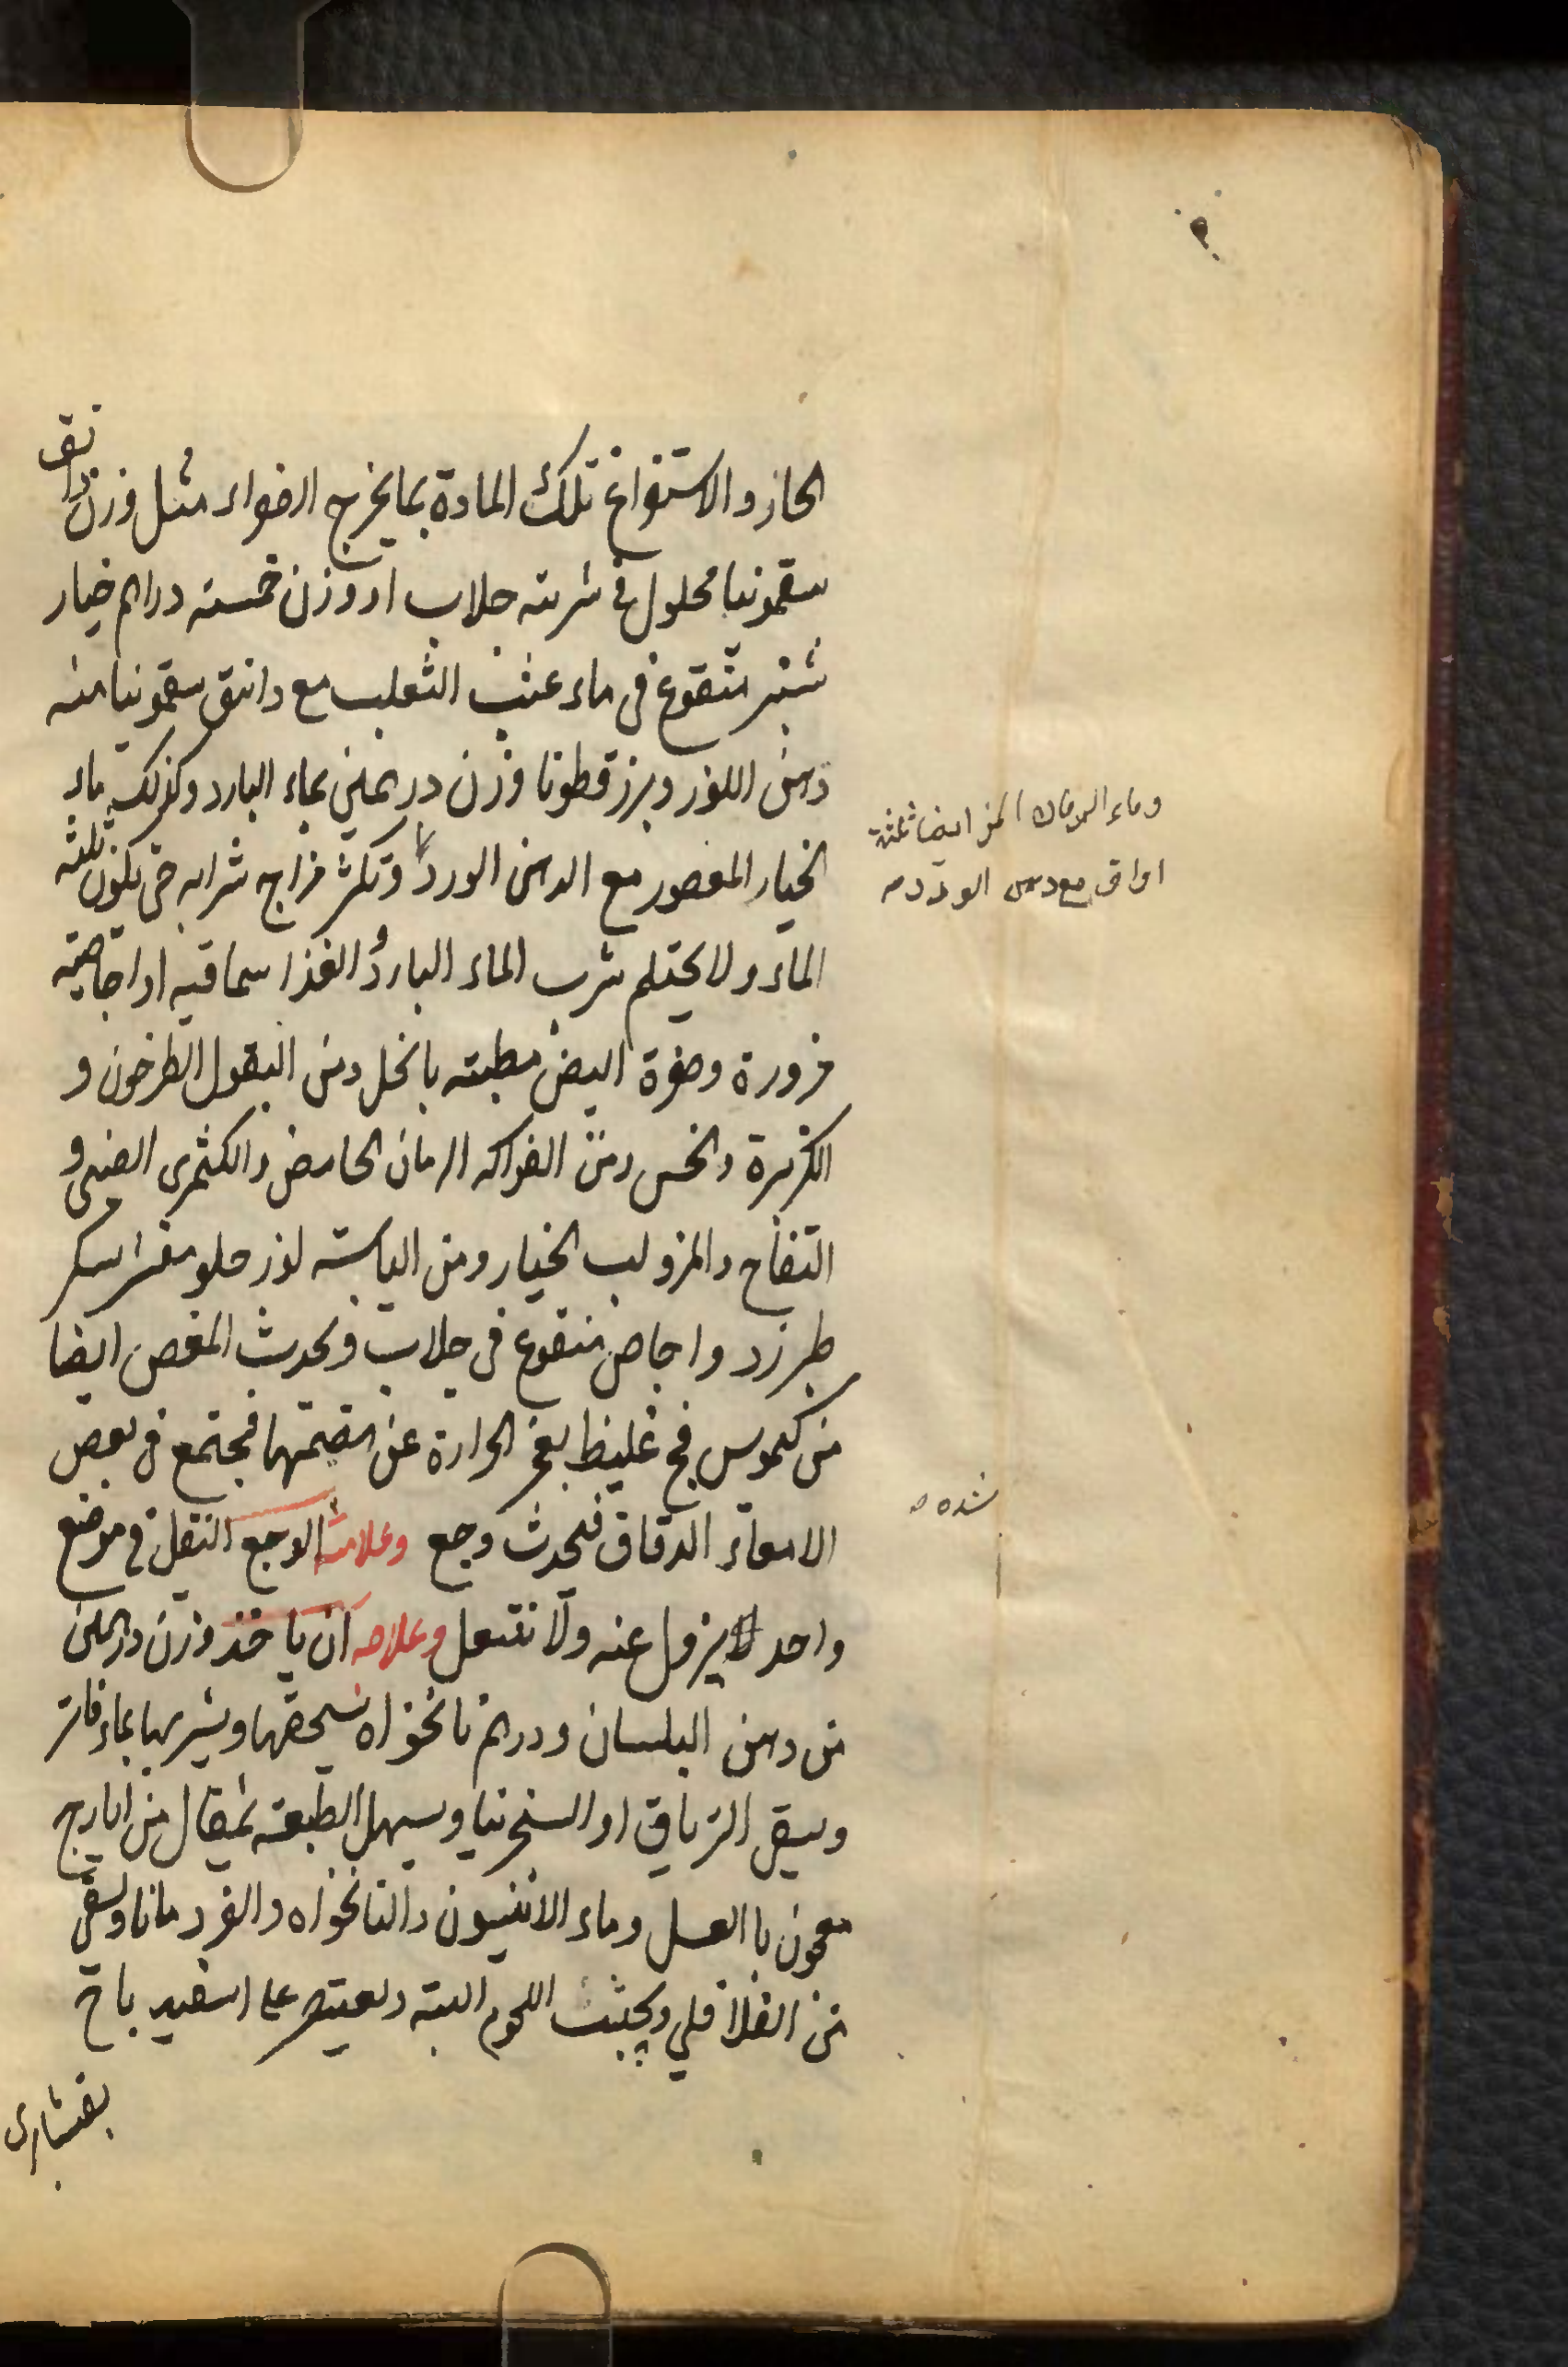 الحاز والاستفراغ تلك المادة بما يخرج الصفراء مثل وزن دانق
سقمونيا محلول في شربته جلاب او وزن خمسة دراهم خيار
شنبر منقوع في ماء عنب الثعلب مع دانق سقمونيا منه
دهن اللوز وبزر قطونا وزن درهمين بماء البارد وكذلك ماء
الخيار المعصور مع الدهن الورد وتكثر مزاج شرابه حتى يكون ثلثه
وماء الرمان المز ايضا ثلثة
اواق مع دهن الورد
الماء ولا يحتلم شرب الماء البارد والغذا سماقيه او اجاصيته
مزورة وصفرة البيض مطبته بالخل ومن البقول الطرخون و
الكزبرة والخس ومن الفواكه الرمان الحامض والكثمرى الصينى و
التفاح والمز ولب الخيار ومن اليابسته لوز حلو مقشر بسكر
طبرزد واجاص منقوع في جلاب ويحدث المغص ايضا
من كيموس فج غليظ يعجز الحرارة عن هضمها فيجتمع في بعض
الامعاء الدقاق فيحدث وجع وعلامة الوجع الثقل في موضع
شده
واحد لا يزول عنه ولا ننتقل وعلاجه ان ياخذ وزن درهمين
من دهن البلسان ودرهم نانخواه يسحقها ويشربها بماء فاتر
ويسقى الترياق او السنجرنيا ويسهل الطبعته بمثقال من ايارج
معجون با العسل وماء الانيسون والنانخواه والقردمانا ويسقى
من الفلافلي ويجتنب اللحوم البته ويقتصر على اسفيد باج